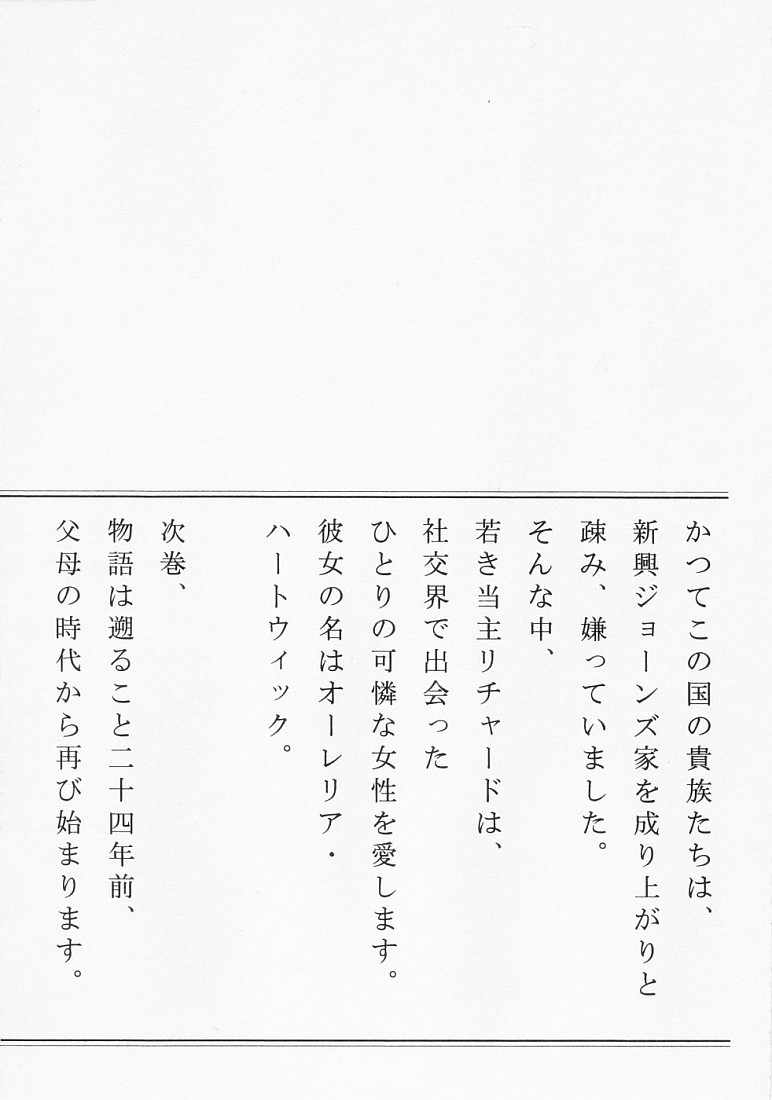 かつてこの国の貴族たちは、
新興ジョーンズ家を成り上がりと
疎み、嫌っていました。
そんな中、
若き当主リチャードは、
社交界で出会った
ひとりの可憐な女性を愛します。
彼女の名はオーレリア・
ハートウィック。
次巻、
物語は遡ること二十四年前、
父母の時代から再び始まります。